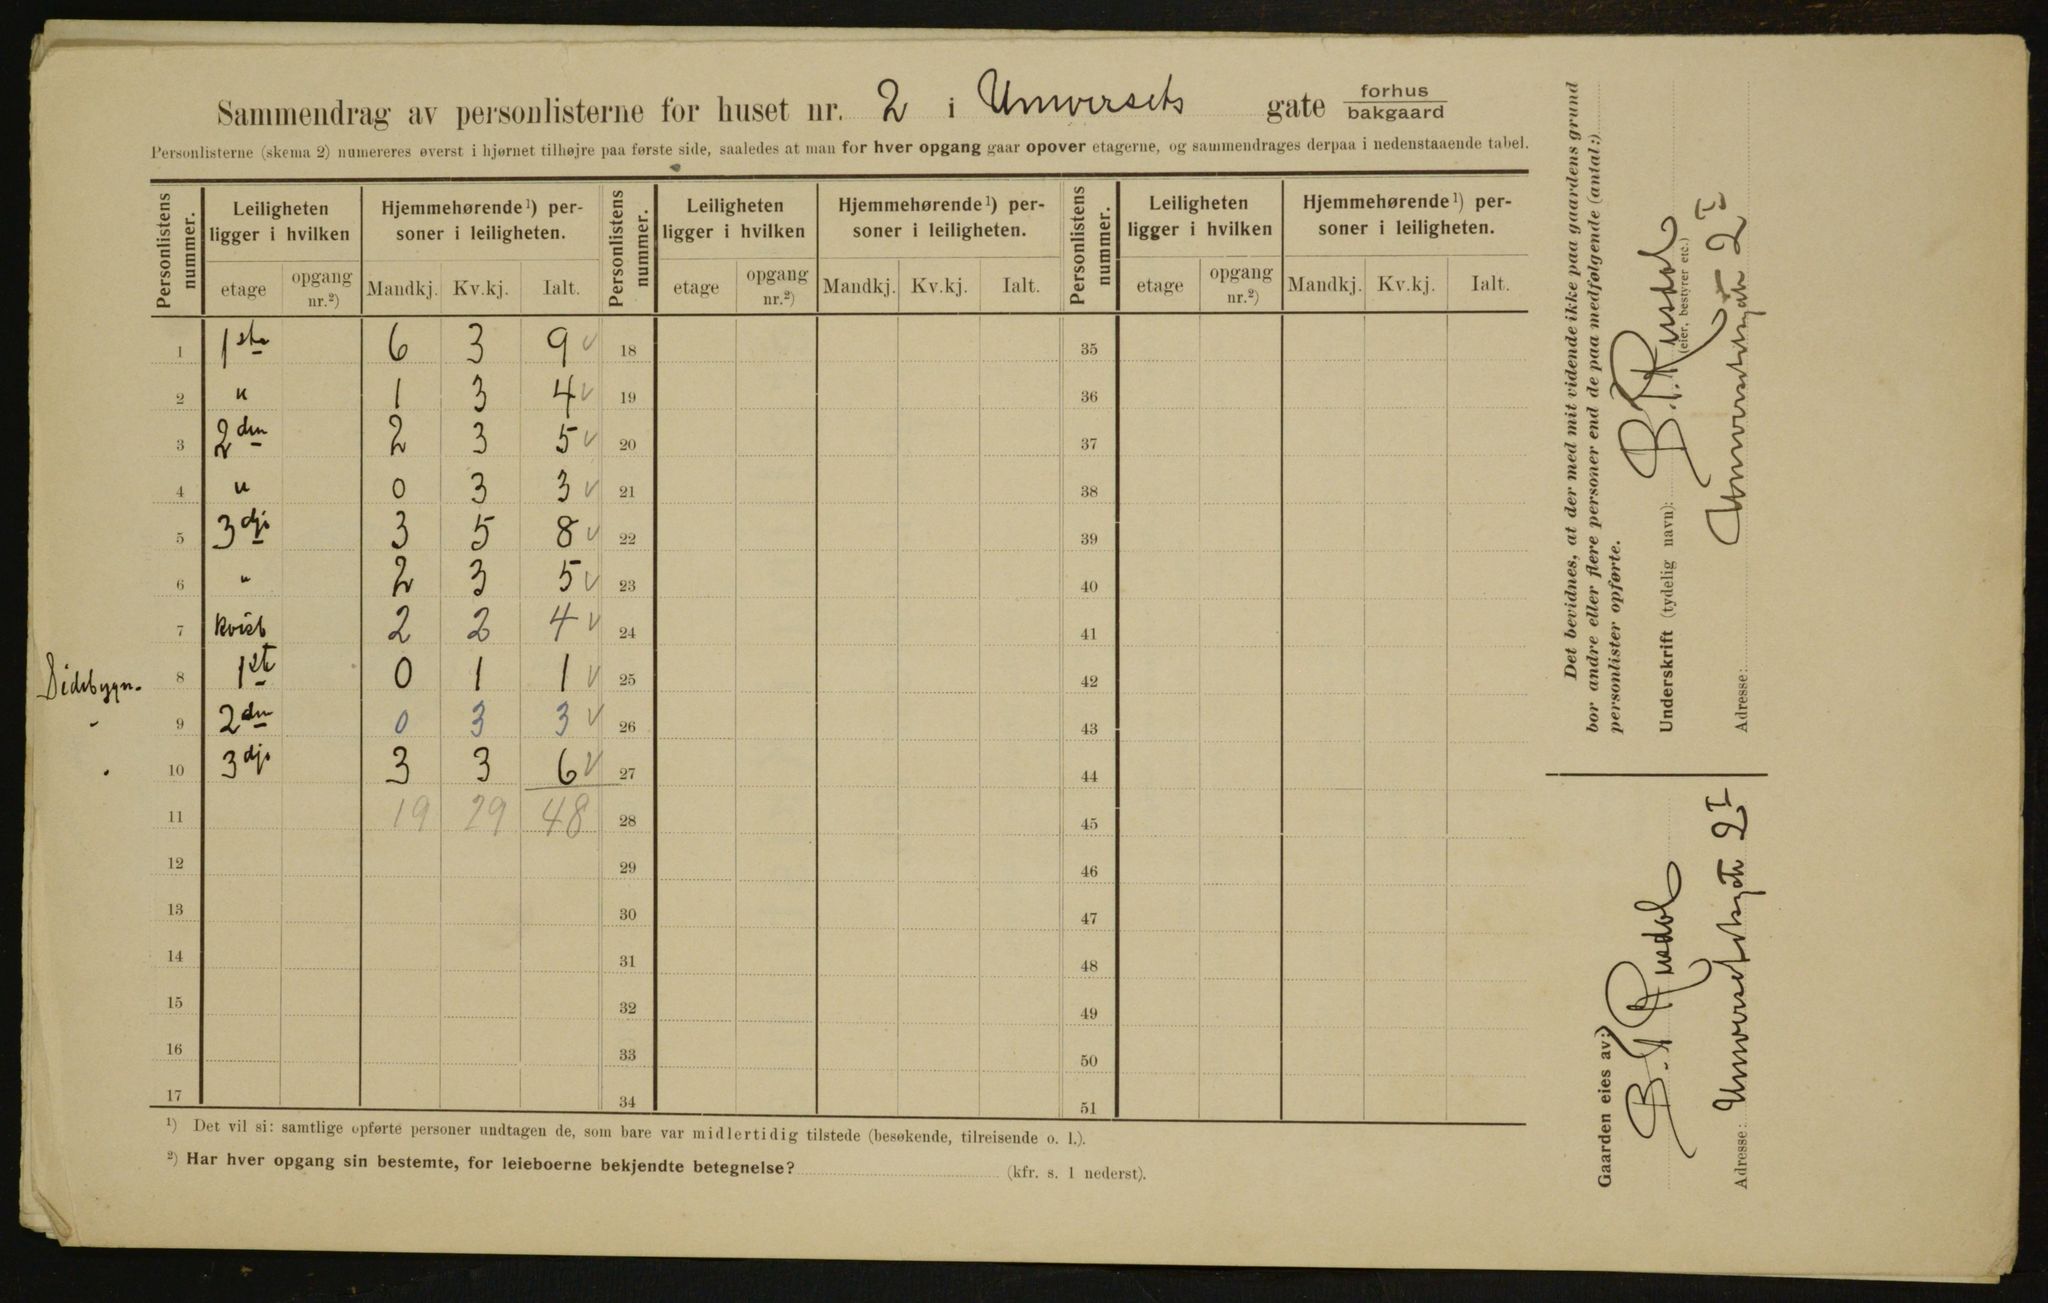 Sammendrag av personlisterne for huset nr. 2 i Universets gate forhus
bakgaard
Personlisterne (skema 2) numereres øverst i hjørnet tilhøjre paa første side, saaledes at man for hver opgang gaar opover etagerne, og sammendrages derpaa i nedenstaaende tabel.
Personlistens nummer. Leiligheten ligger i hvilken Hjemmehørende¹) personer i leiligheten. Personlistens nummer. Leiligheten ligger i hvilken Hjemmehørende¹) personer i leiligheten. Personlistens nummer. Leiligheten ligger i hvilken Hjemmehørende¹) personer i leiligheten.
etage opgang nr.²) Mandkj. Kv.kj. Ialt. etage opgang nr.²) Mandkj. Kv.kj. Ialt. etage opgang nr.²) Mandkj. Kv.kj. Ialt.
1 1ste 6 3 9 18 35
2 " 1 3 4 19 36
3 2den 2 3 5 20 37
4 " 0 3 3 21 38
5 3dje 3 5 8 22 39
6 " 2 3 5 23 40
7 Kvist 2 2 4 24 41
Sidebygn. 8 1ste 0 1 1 25 42
" 9 2den 0 3 3 26 43
" 10 3dje 3 3 6 27 44
11 19 29 48 28 45
12 29 46
13 30 47
14 31 48
15 32 49
16 33 50
17 34 51
¹) Det vil si: samtlige opførte personer undtagen de, som bare var midlertidig tilstede (besøkende, tilreisende o. l.).
²) Har hver opgang sin bestemte, for leieboerne bekjendte betegnelse? (kfr. s. 1 nederst).
Det bevidnes, at der med mit vidende ikke paa gaardens grund
bor andre eller flere personer end de paa medfølgende (antal:)
personlister opførte.
Underskrift (tydelig navn):
(eier, bestyrer etc.)
Adresse: Universitetsgaten 2 I
Gaarden eies av:
Adresse: Universitetsgaten 2 I